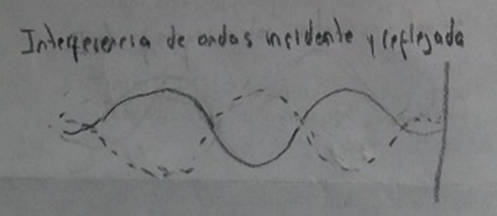 Interferencia de ondas incidente y reflejada